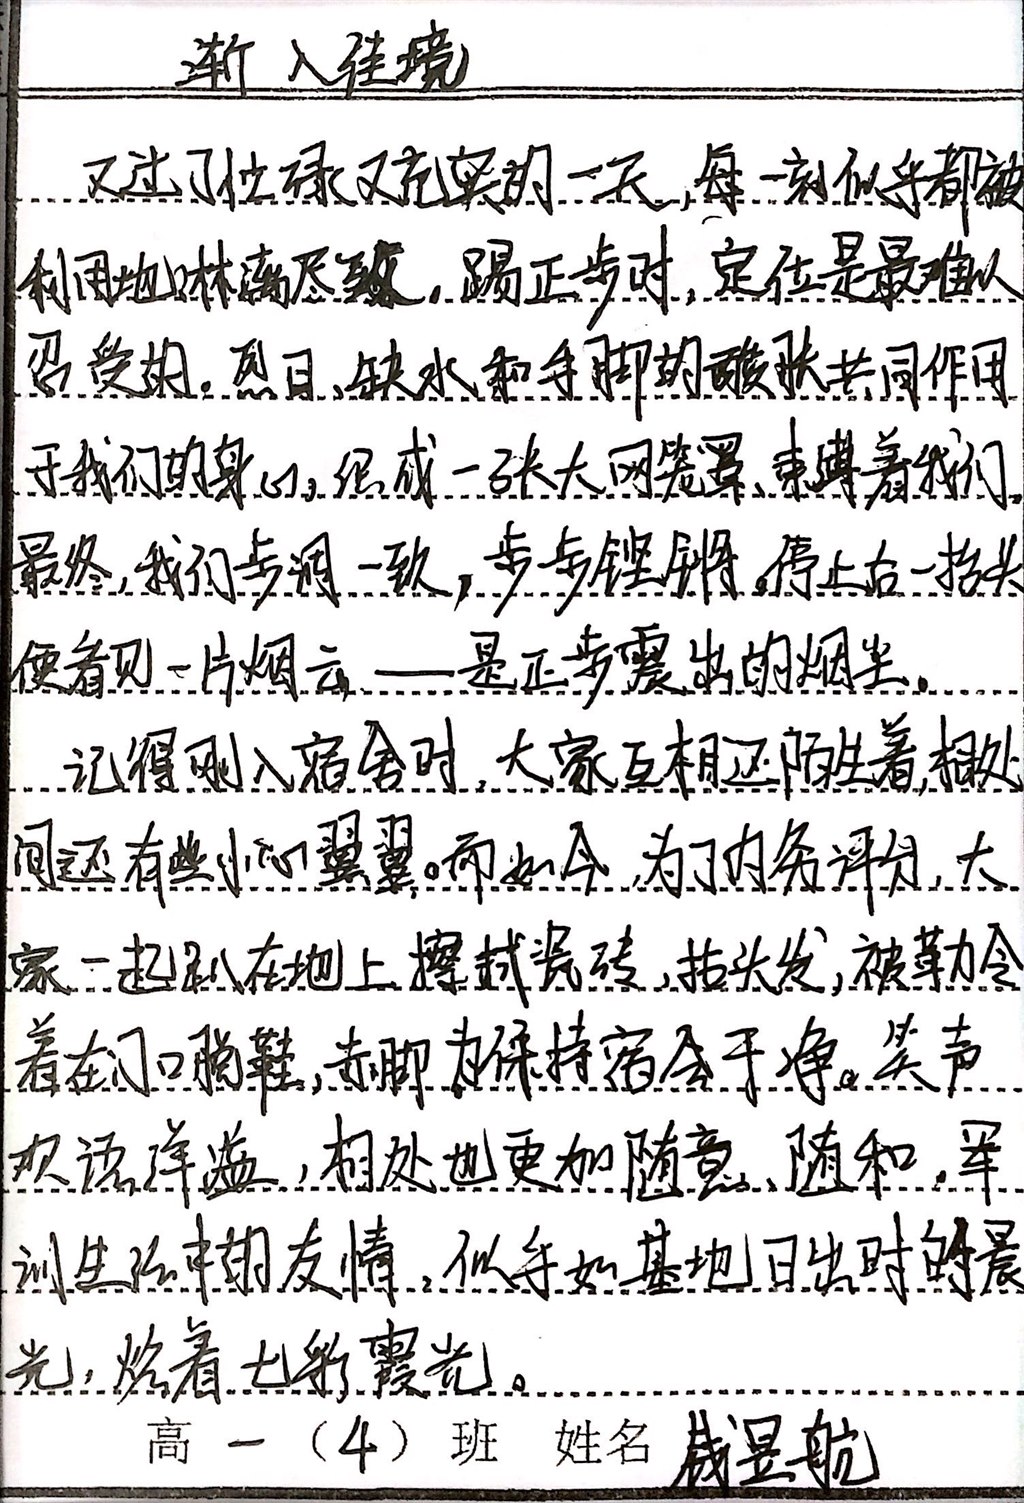 渐入佳境
又过了忙碌又充实的一天,每一刻似乎都被
利用地淋漓尽致。踢正步时,定位是最难以
忍受的。烈日、缺水和手脚的酸胀共同作用
于我们的身心,织成一张大网笼罩、束缚着我们。
最终,我们步调一致,步步铿锵。停止后一抬头
便看见一片烟云——是正步震出的烟尘。
记得刚入宿舍时,大家互相还陌生着,相处
间还有些小心翼翼。而如今,为了内务评分,大
家一起趴在地上擦拭瓷砖,拈头发,被勒令
着在门口脱鞋,赤脚为保持宿舍干净。笑声
欢语洋溢,相处也更加随意、随和。军
训生活中的友情,似乎如基地日出时的晨
光,焰着七彩霞光。
高一(4)班 姓名 昱航